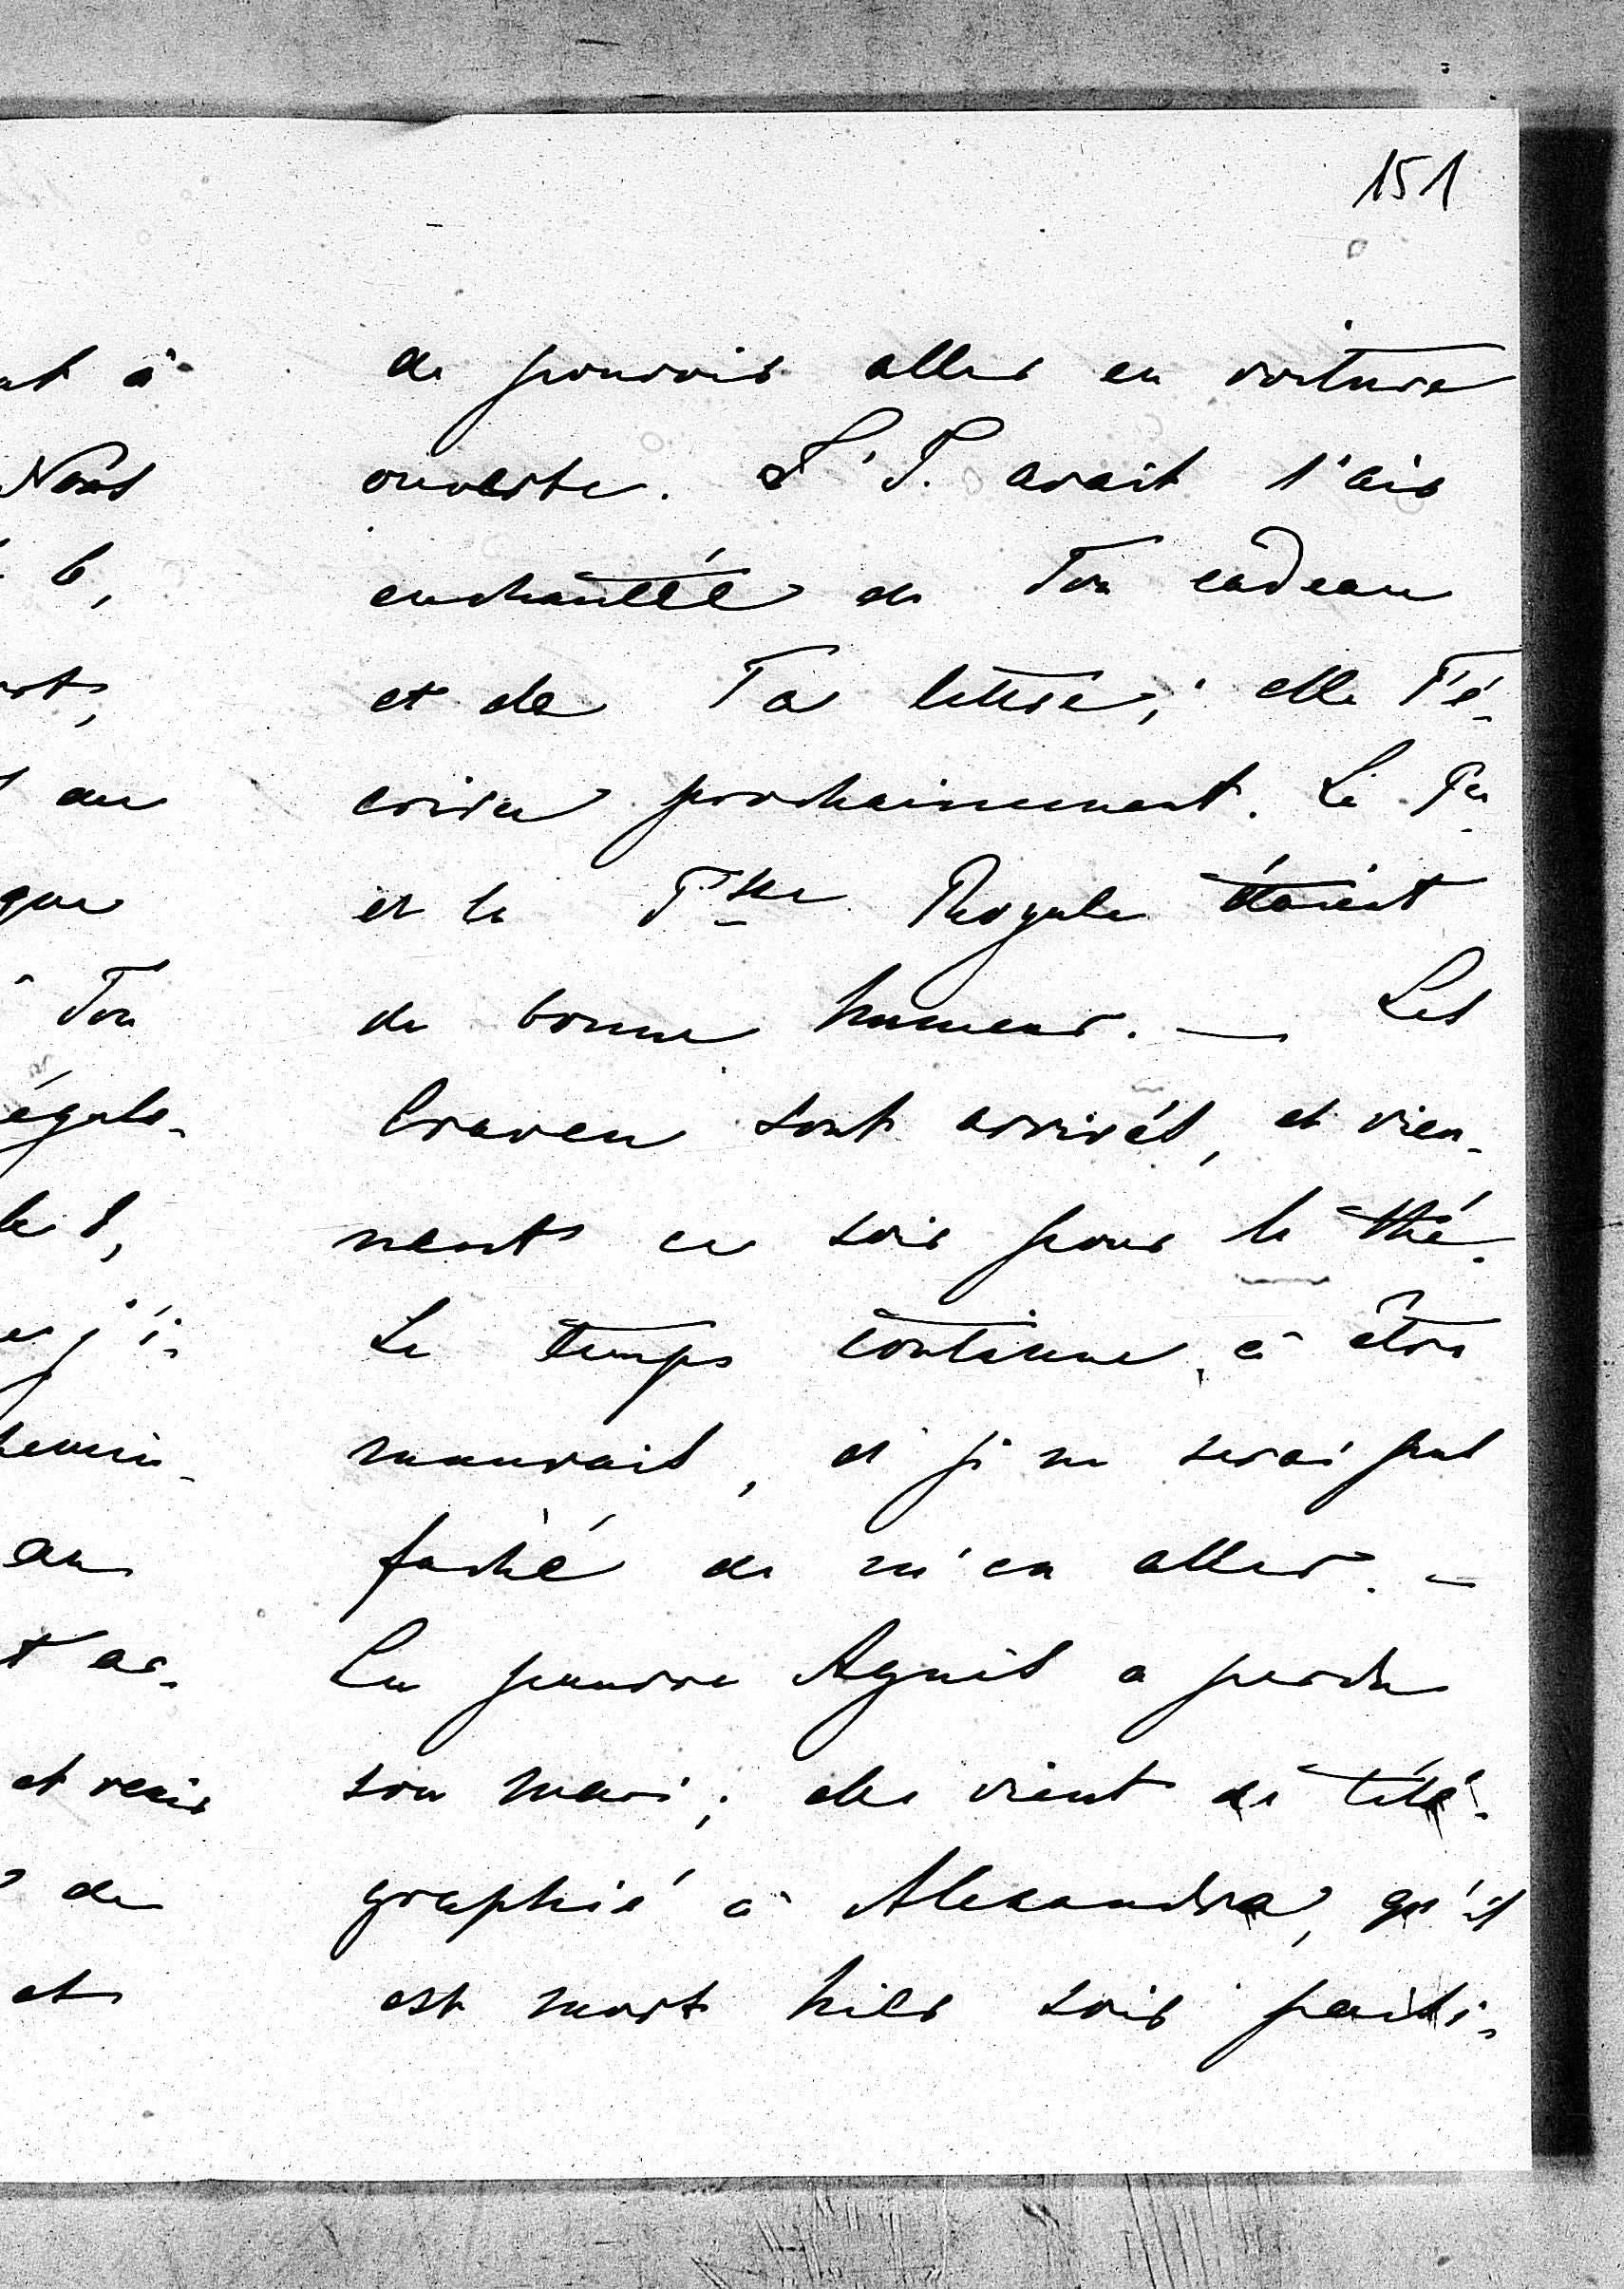 151
de pouvoir aller en voiture
ouverte. avait l'air
enchantée de Ton cadeau
et de Ta lettre; elle T'é-
crira prochainement. Le Pce
et la Psse Royale étaient
de bonne humeur. — Les
Craven sont arrivés, et vien-
nent ce soir pour le thé.
Le temps continue à être
mauvais, et je ne serai pas
faché de m'en aller. —
La pauvre Agnès a perdu
son mari; elle vient de télé-
graphié à Alexandra, qu'il
est mort hier soir paisi-
à
Nous
6,
au
que
Ton
égale-
le 8,
j'i-
au
et
de
et